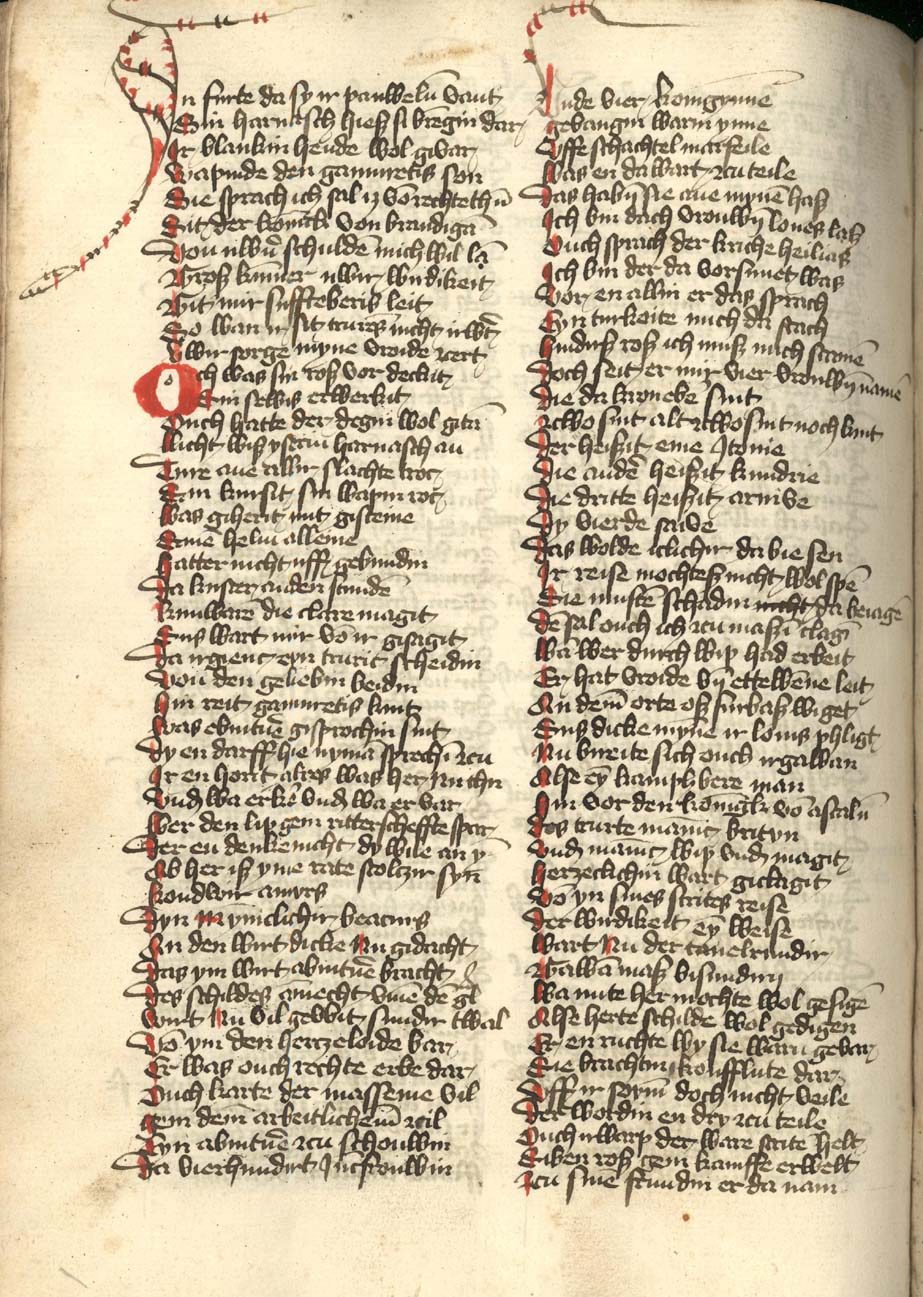 In furte da sy ir pauwelun vant
Sin harnasch hiesz si bregin dar
Ir blankin hende wol givar
Wapinde den gamuretis son
Sie sprach ich sal iz vō rechte thun
Sit der konick von brandigā
Von uwir schuldē mich wil lā
Grosz kūmer uwir wirdikeit
Git mir suffteberis leit
So wan ir sit trures nicht irwert
Uwir sorge myne vroide zert
Och was sin rosz vor deckit
Sin selbis erwerkit
Ouch hatte der degin wol gitā
Licht wisz yserin harnasch an
Ture ane allir slachte troc
Sin kursit sin wapin roc
Was giherit mit gisteine
Sinē helm alleine
Hatter nicht uff gebundin
Da kuster anden stundē
Kunware die clare magit
Sus wart mir vō ir gisagit
Da irgienc eyn trurit scheidin
Von den geliebin beidin
Hin reit gamuretis kint
Was ebintuē gisprochin sint
Dy en darff hie nymā sprechī zcu
Ir en horit alres was her nu thu
Vnd wa erkē vnd wa er var
Wer den lip gein ritterscheffte spar
Der en denke nicht dy wile an y
Ab her isz yme rate stoltzir syn
Kondwir amyrs
Dyn mynniclichir beacurs
An den wirt dicke nu gidacht
Was ym wirt abintuē bracht
Des schildes ammecht vmē dē gral
Wirt nu vil geubit sundir twal
Vō ym den hertzeloide bar
Er was ouch rechte erbe dar
Ouch karte der massenie vil
Gein dem arbeitlichem zil
Eyn abintuē zcu schouwin
Da vierhundirt Juncfrouwin
Unde vier koniginnē
Gevangin warin ynne
Uffe schachtel marfeile
Was en da wart zcu teile
Das habin sie ane mynē hasz
Ich bin dach vrouwin lones lasz
Ouch sprach der kriche heilias
Ich bin der da vorsumet was
Vor en allin er das sprach
Eyn turkoite mich da stach
Hindirsz rosz ich musz mich scamē
Doch seit er mir vier vrouwin namē
Die da kronebē sint
Zcwo sint alt zcwo sint noch kint
Der heiszit eine Itonie
Die andē heiszit kundrie
Die dritte heiszit arnive
Dy vierde saive
Das wolde iclichir da bie sen
Ir reise mochtesz nicht wol spē
Sie mustē schadin nicht da beiagē
Dē sal ouch ich zcu maszin clagī
Wā wer durch wip had erbeit
Er hat vroide vn ettewēne leit
An dem orte osz furbasz wiget
Sus dicke myne ir lonis phligt
Nu bireite sich ouch irgawan
Alse ey kamplibere man
Hin vor den konigk vō ascalun
Des trurte manic brityn
Vnd manic wip vnd magit
Herzeclichin wart giclagit
Vō yn sines strites reise
Der wirdikeit ey weise
Wart nu der tauelrundir
Gawā masz bisundirn
Wa mite her mochte wol gesigē
Alse herte schilde wol gedigen
Er en ruchte wy sie warn gebar
Sie brachtin koufflute dar
Uff ir soym doch nicht veile
Der wordin en dry zcu teile
Ouch irwarp der ware strite helt
Siben rosz gein kamffe erwelt
Zcu sine frundin er da nam